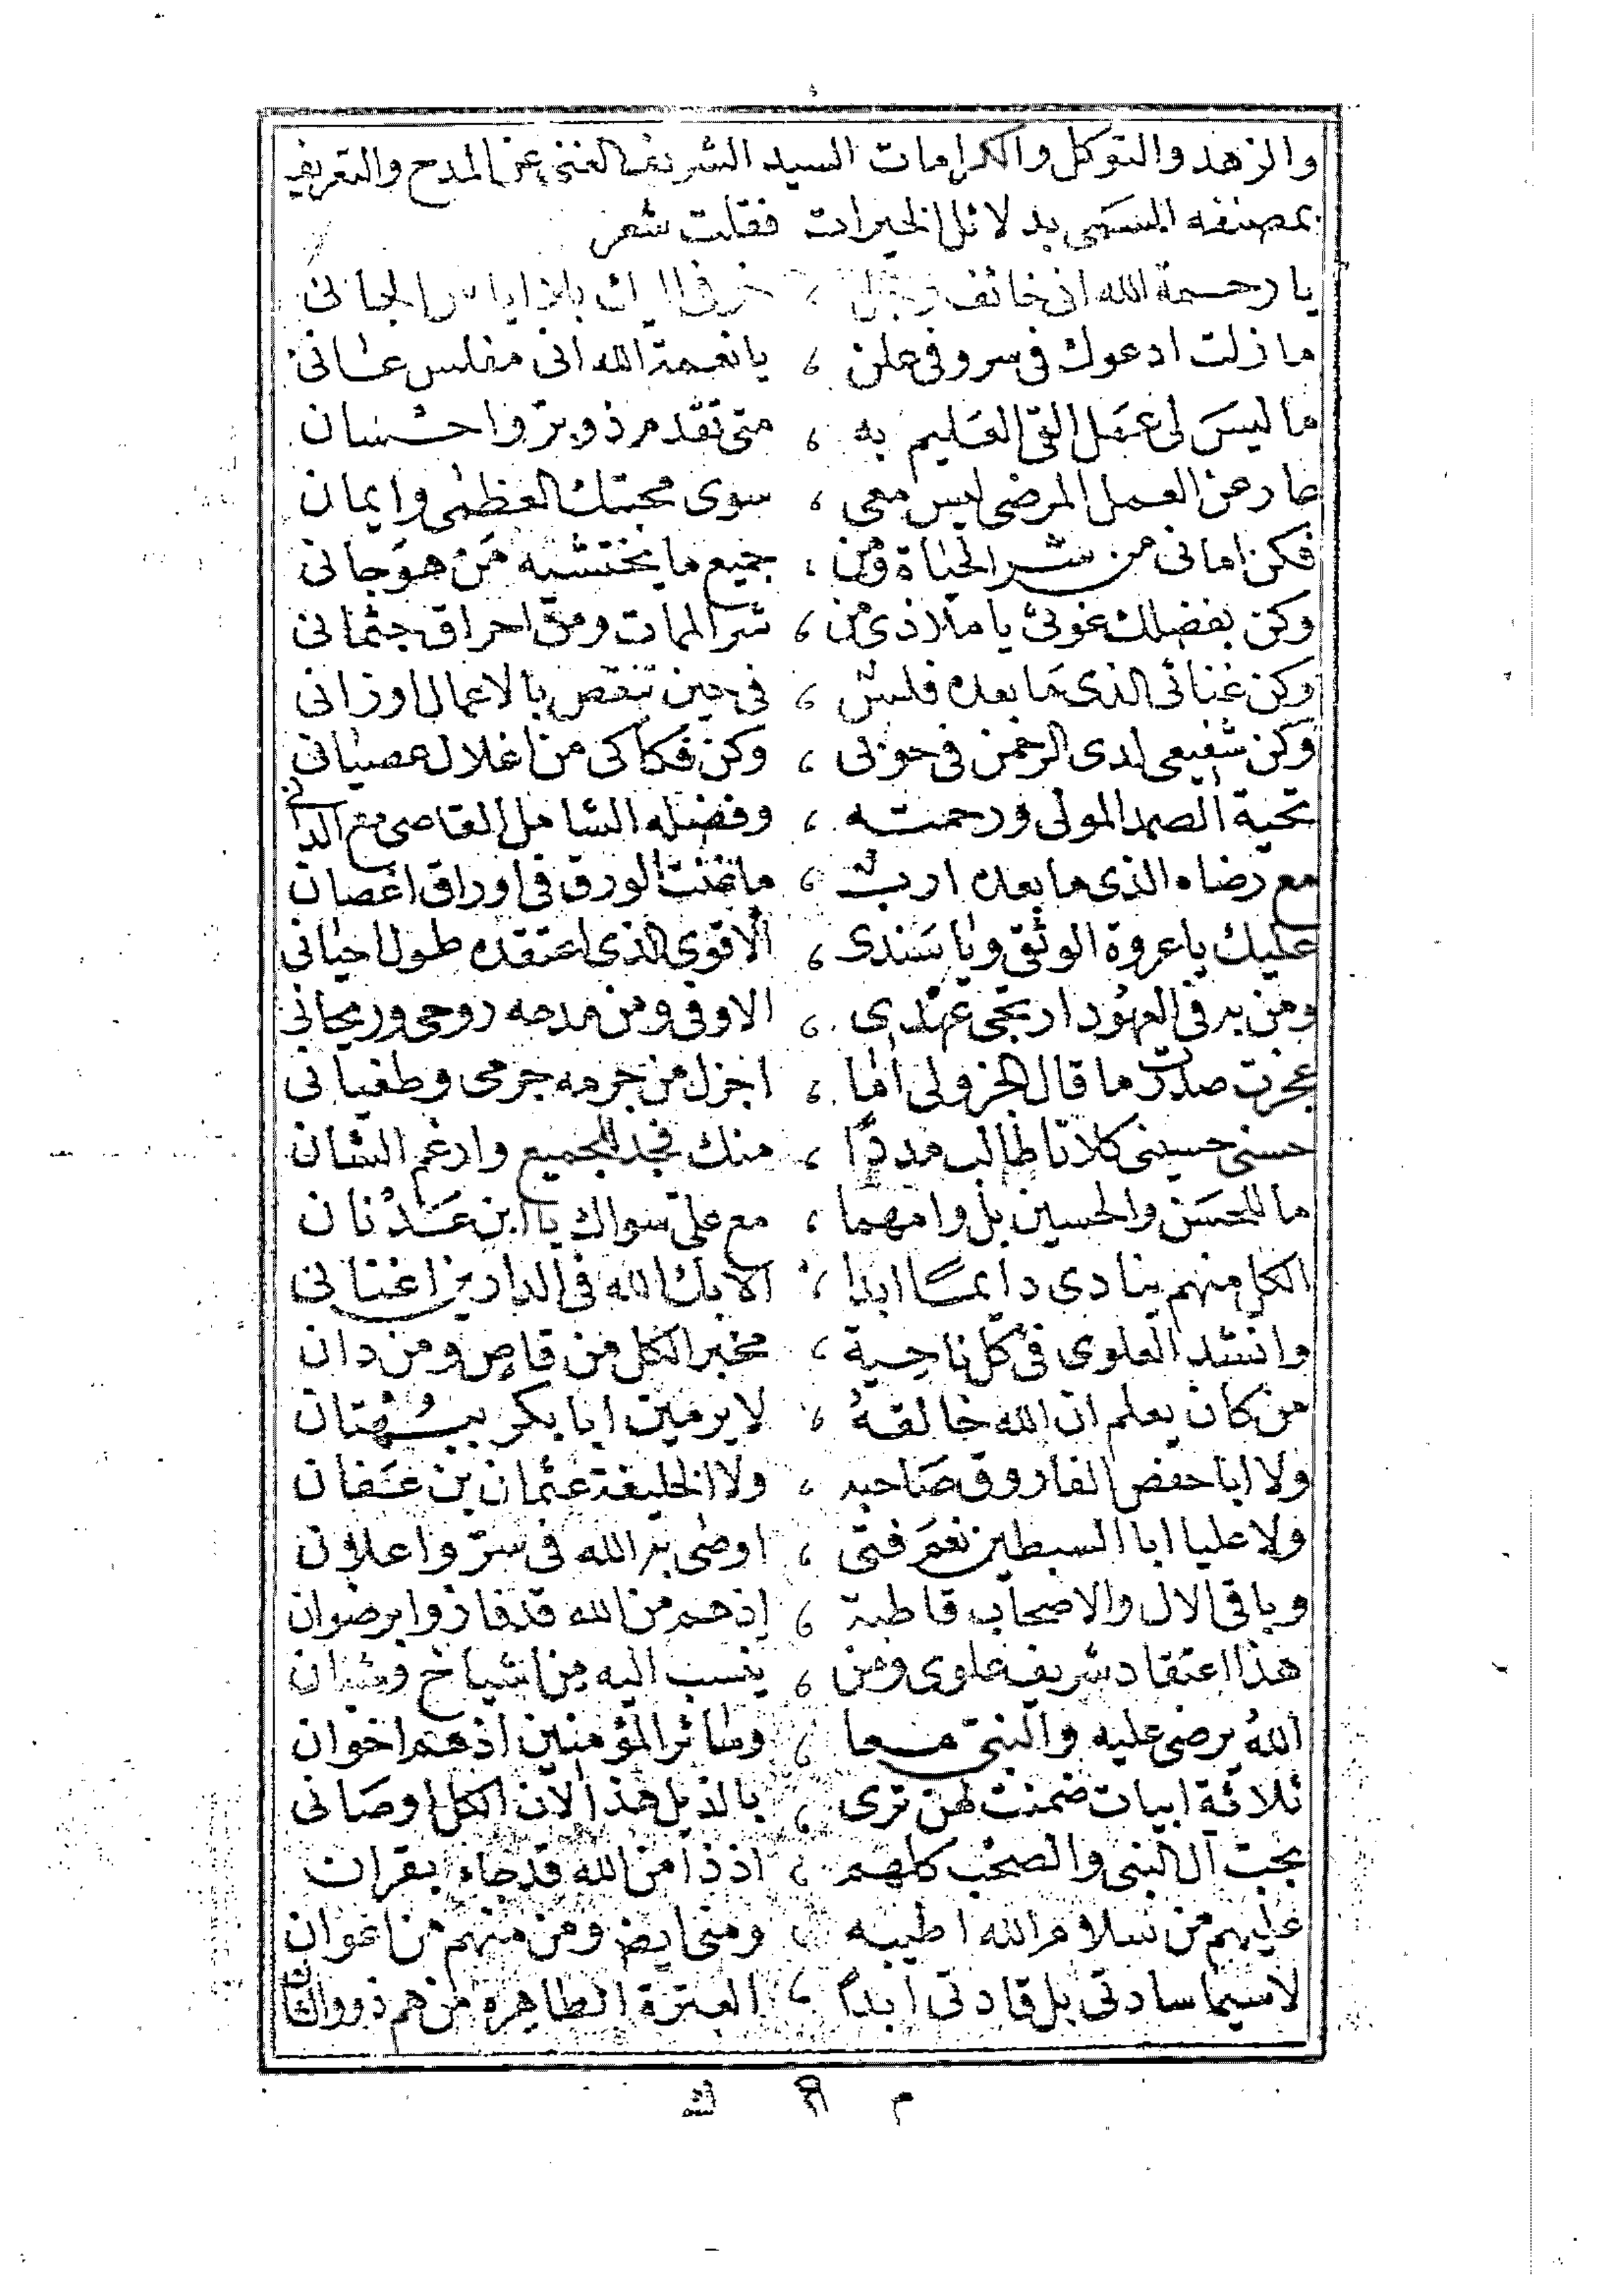 والزهد والتوكل والكرامات السيد الشريف الغنى عن المدح والتعريف
بمصنفه المسمى بدلائل الخيرات فقلت شعر
يا رحمة الله انى خائف الجانى
ما زلت ادعوك فى سر وفى علن ، يا نعمة الله انى مفلس عانى
ما ليس لى عمل القى العليم به ، متى تقدم ذو بر واحسان
عار عن العمل المرضى ليس معى ، سوى محبتك العظمى وايمان
فكن امانى من شر الحياة ومن ، جميع ما يختشيه من هو جانى
وكن بفضلك غوثى يا ملاذى من ، شر الممات ومن احراق جثمانى
وكن غنائى الذى ما بعده فلس ، فى حين تنقص بالاعمال اوزانى
وكن شفيعى لدى الرحمن فى ، وكن فكاكى من اغلال عصيانى
تحية الصمد المولى ورحمته ، وفضله الشامل القاصى مع الدانى
مع رضاه الذى ما بعده ارب ، ما غنت الورق فى اوراق اغصان
عليك يا عروة الوثقى ويا سندى ، الاقوى الذى اعتقده طول احيانى
ومن به فى العهود ارتجى عهدى ، الاوفى ومن مدحه روحى وريحانى
عجزت صدرت ما قال الجزولى اما ، اجزل من جرمه جرمى وطغيانى
حسنى حسينى كلانا طالب مددا ، منك فجد للجميع وارغم الشان
ما للحسن والحسين بل وامهما ، مع على سواك يا ابن عدنان
الكل منهم ينادى دايما ابدا ، الا بك الله فى الدارين اغنانى
وانشد العلوى فى كل ناحية ، مخبر الكل من قاص ومن دان
من كان يعلم ان الله خالقه ، لا يرمين ابا بكر ببهتان
ولا ابا حفص الفاروق صاحبه ، ولا الخليفة عثمان بن عفان
ولا عليا ابا السبطين نعم فتى ، اوصى به الله فى سر واعلان
وباقى الال والاصحاب قاطبة ، اذ هم من الله قد فازوا برضوان
هذا اعتقاد شريف علوى ومن ، ينسب اليه من اشياخ وشبان
الله يرضى عليه والنبى معا ، وسائر المؤمنين اذ هم اخوان
ثلاثة ابيات ضمنت لهن ترى ، بالذيل هذا لان الكل اوصانى
بحب آل النبى والصحب كلهم ، اذ ذا من الله قد جاء بقران
عليهم من سلام الله اطيبه ، ومنى ايضا ومن منهم من اعوان
لا سيما سادتى بل قادتى ابدا ، العترة الطاهرة من هم ذووا